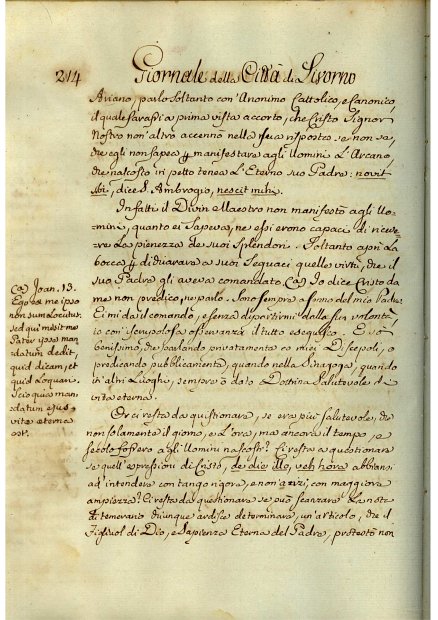 214 Giornale della Città di Livorno
Ariano, parlo soltanto con Anonimo Cattolico, e Canonico,
il quale sarassi a prima vista accorto, che Cristo Signor
Nostro non altro accennò nella sua risposta se non se,
che egli non sapea manifestare agli Uomini L'Arcano,
che nascosto in petto tenea L'Eterno suo Padre: novit
sibi, dice S. Ambrogio, nescit mihi.
Infatti il Divin Maestro non manifestò agli Uo-
mini, quanto ei sapeva, ne essi erono capaci di riceve-
re La pienezza de suoi splendori. Soltanto aprì La
bocca dichiarare a suoi seguaci quelle virtù, che il
suo Padre gli aveva comandato. (a) Io dice Cristo da
me non predico, ne parlo. Sono sempre a senno del mio Padre
Ei mi dà il comando, e senza dipartirmi dalla sua volontà
io con iscrupolosa osservanza il tutto eseguisco. E sò
benissimo, che parlando privatamente co miei Discepoli, o
predicando pubblicamente, quando nella Sinagoga, quando
in altri Luoghi, sempre ò dato Dottrina salutevole di
vita eterna.
(a) Joan. 13.
Ego ex me ipso
non sum Locutus
sed qui misit me
Pater ipse man
datum dedit,
quid dicam, et
quid Loquar.
Scio quia man-
datum ejus,
vita aeterna
est.
Or ci resta da questionare, se era più salutevole, che
non solamente il giorno, e L'ora, ma ancora il tempo, e
secolo fossero agli Uomini nascosti? Ci resta a questionare
se quell'espressioni di Cristo, de die illo, vel hora abbiansi
ad intendere con tanto rigore, e non arizi, con maggiora
ampiezza? Ci resta da questionare se può scanzare La nota
di temerario chiunque ardisce determinare, un'articolo, che il
Figliuol di Dio, e Sapienza Eterna del Padre, protestò non